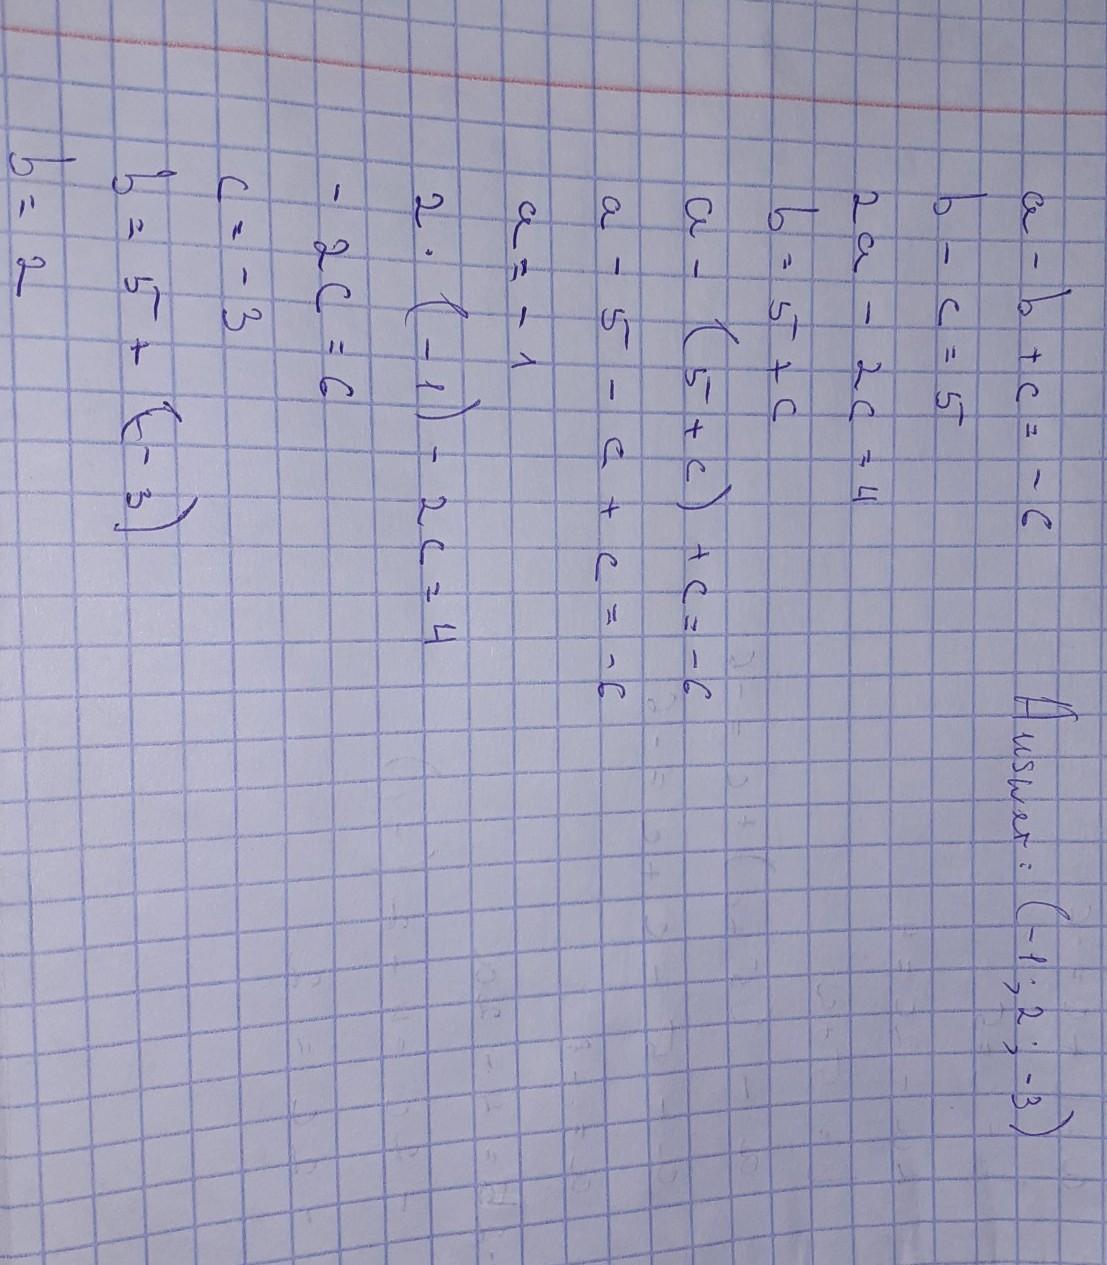 a - b + c = - 6
b - c = 5
2a - 2c = 4
b = 5 + c
a - (5 + c) + c = - 6
a - 5 - c + c = - 6
a = - 1
2 · (- 1) - 2c = 4
- 2c = 6
c = - 3
b = 5 + (- 3)
b = 2
Answer: (-1; 2; -3)